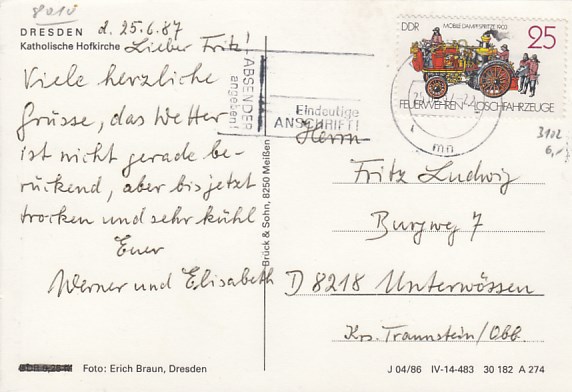 8010
DRESDEN d. 25.6.87
Katholische Hofkirche Lieber Fritz!
Viele herzliche
Grüsse, das Wetter
ist nicht gerade be-
rückend, aber bis jetzt
trocken und sehr kühl
Euer
Werner und Elisabeth
Foto: Erich Braun, Dresden
Brück & Sohn, 8250 Meißen
ABSENDER
angeben!
Eindeutige
ANSCHRIFT!
DDR MOBILE DAMPFSPRITZE 1903 25
FEUERWEHREN-LÖSCHFAHRZEUGE
Herrn
Fritz Ludwig
Burgweg 7
D 8218 Unterwössen
Krs. Traunstein/Obb.
J 04/86 IV-14-483 30 182 A 274